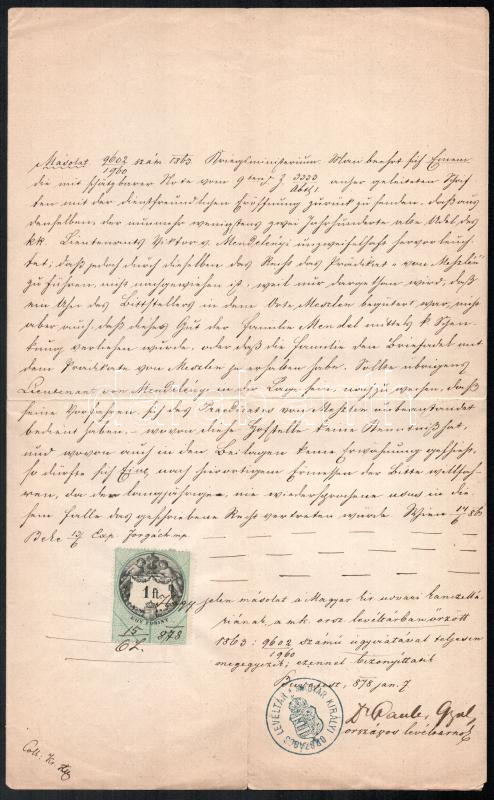 Másolat 9602/1960 szám 1863 Kriegsministerium. Man beehrt sich Einem
die mit schätzbarer Note vom 9ten d. Z 3333/Abth 1 anher geleiteten Schrif-
ten mit der dienstfreundlichen Eröffnung zurück zu senden, daß aus
denselben der nunmehr wenigstens zwei Jahrhunderte alte Adel des
kk. Lieutenants Viktor v. Mendelényi unzweifelhaft hervorleuch-
tet; daß jedoch durch dieselben das Recht das Prädikat „von Meszlen"
zu führen, nicht nachgewiesen ist, weil nur dargethan wird, daß
ein Ahn des Bittstellers in dem Orte Meszlen begütert war, nicht
aber auch, daß dieses Gut der Familie Mendel mittels k Schen-
kung verliehen wurde, oder daß die Familie den Briefadel mit
dem Prädikate von Meszlen je erhalten habe. Sollte übrigens
Lieutenant von Mendelényi in der Lage sein, nachzuweisen, daß
seine Vorfahren sich des Praedicates von Meszlen unbeanstandet
bedient haben, – wovon diese Hofstelle keine Kenntniß hat,
und wovon auch in den Beilagen keine Erwähnung geschieht,
so dürfte sich Eine nach hierortigem Ermessen der Bitte willfah-
ren, da der langjährige, nie widersprochene usus in die-
sem Falle das geschriebene Recht vertreten würde. Wien 14/7 863
Beke 17/7 Exp. Forgách mp.
1 ft
EGY FORINT
15 / 878
62.
jelen másolat a Magyar kir udvari kanczellá-
riának, a mk. orsz. levéltárban őrzött
1863: 9602/1960 számú ügyiratával teljesen
megegyezik; ezennel bizonyíttatik
Budapest, 878 jan. 7
Dr Pauler Gyula
országos levéltárnok
MAGYAR KIRÁLYI ORSZÁGOS LEVÉLTÁR
Coll.